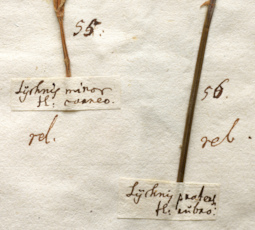 55.
Lychnis minor
fl: carneo.
rel.
56.
rel.
Lychnis
fl: rubro.